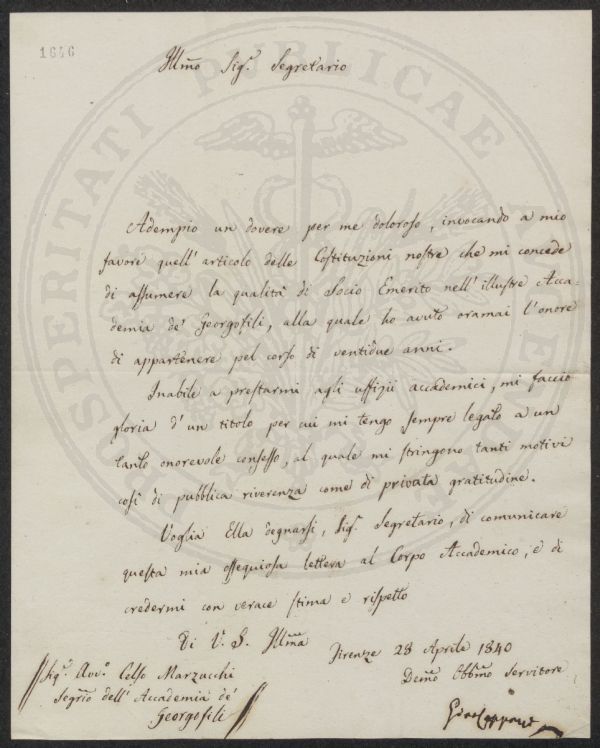 1646
Illmo Sigr. Segretario
Adempio un dovere per me doloroso, invocando a mio
favore quell' articolo delle Costituzioni nostre che mi concede
di assumere la qualità di Socio Emerito nell' illustre Acca-
demia de' Georgofili, alla quale ho avuto oramai l'onore
di appartenere pel corso di ventidue anni.
Inabile a prestarmi agli uffizii accademici, mi faccio
gloria d' un titolo per cui mi tengo sempre legato a un
tanto onorevole consesso, al quale mi stringono tanti motivi
così di pubblica riverenza come di privata gratitudine.
Voglia Ella degnarsi, Sigr. Segretario, di comunicare
questa mia ossequiosa lettera al Corpo Accademico, e di
credermi con verace stima e rispetto
Di V. S. Illma
Firenze 28 Aprile 1840
Devmo Obbmo Servitore
Gino Capponi
Sigr. Avvo. Celso Marzucchi
Segrio dell' Accademia de'
Georgofili
PROSPERITATI PUBLICAE AUGENDAE